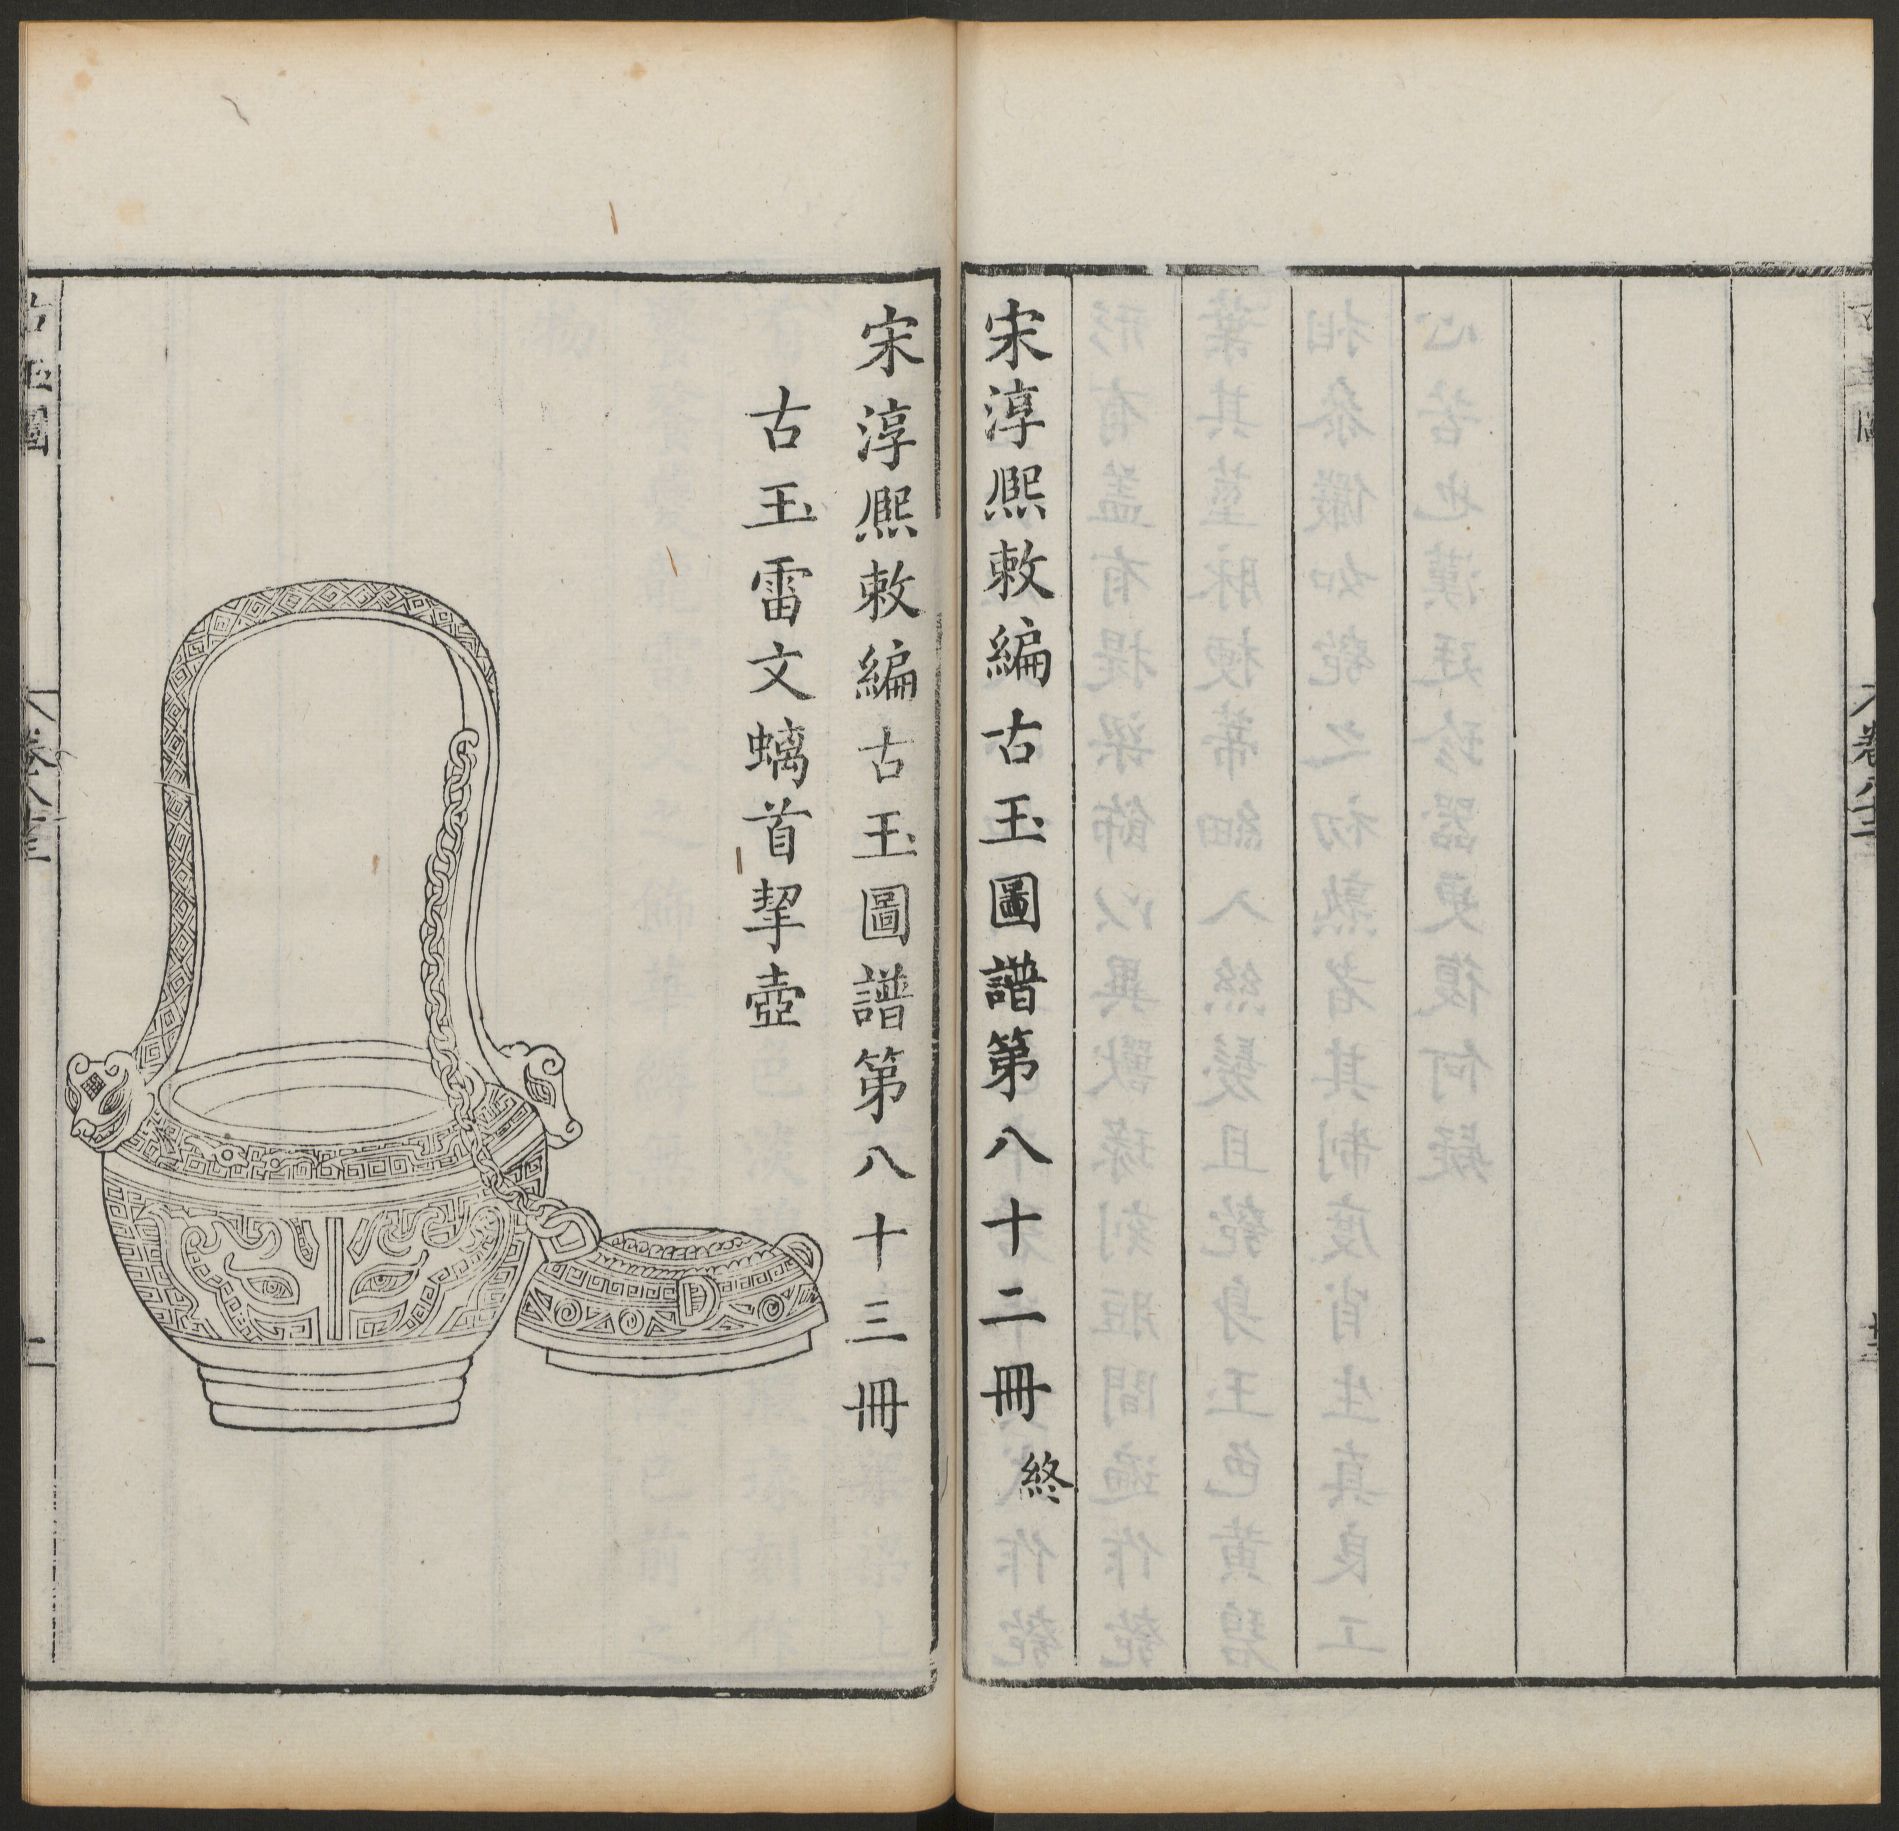 宋淳熙敕編古玉圖譜第八十二冊 終
宋淳熙敕編古玉圖譜第八十三冊
古玉雷文螭首挈壺
古玉圖
卷八十三